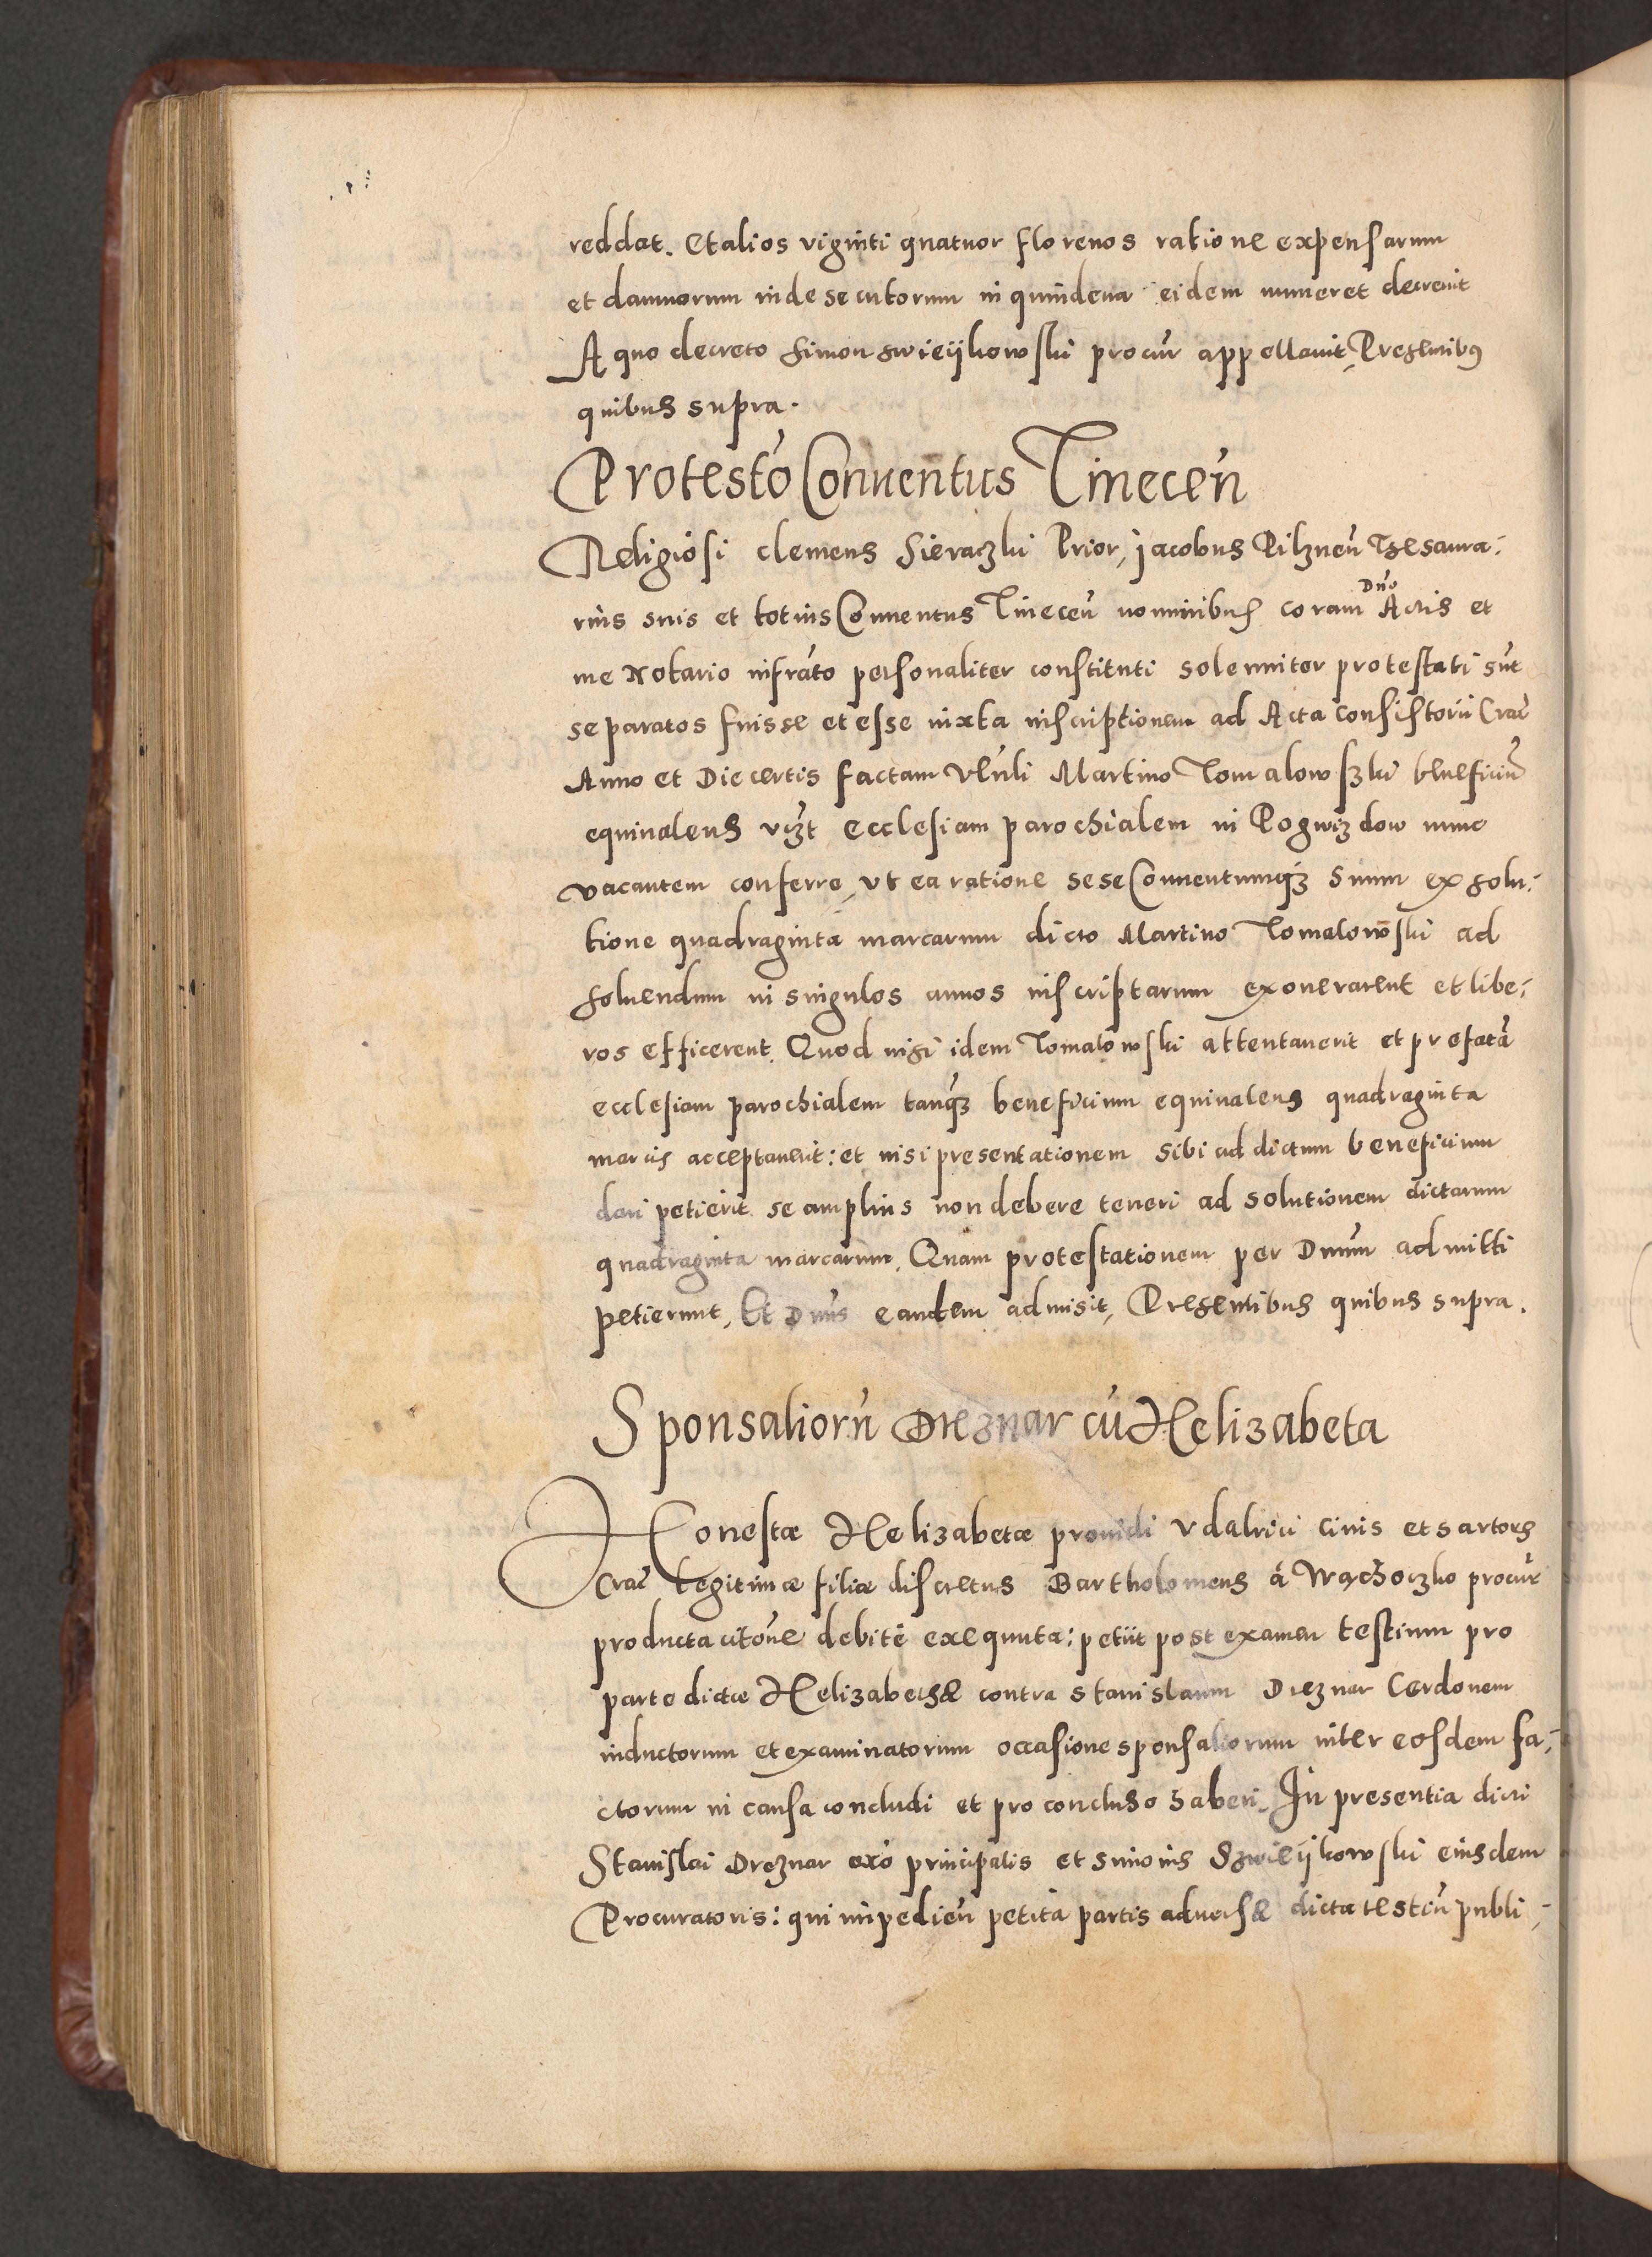 reddat. Et alios viginti quatuor florenos ratione expensarum
et damnorum inde secutorum in quindena eidem numeret decrevit
A quo decreto Simon Swieijkowski procur̄ appellavit, Presentibꝰ
quibus supra.
Protestō Conventus Tinecen̄
Religiosi Clemens Sieraczki Prior, Jacobus Pilznen̄ Thesaura-
rius suis et totius Conventus Tinecen̄ nominibus coram Dn̄o Actis et
me Notario infrāto personaliter constituti solenniter protestati sūt
se paratos fuisse et esse iuxta inscriptionem ad Acta Consistorii Crac̄
Anno et Die certis factam Ven̄li Martino Tomalowszki beneficiū
equivalens vizt ecclesiam parochialem in Pogwizdow nunc
vacantem conferre, ut ea ratione sese Conventumq̃ suum ex solu-
tione quadraginta marcarum dicto Martino Tomalowski ad
solvendum in singulos annos inscriptarum exonerarent et libe-
ros efficerent. Quod nisi idem Tomalowski attentaverit et prefatā
ecclesiam parochialem tanq̃ beneficium equivalens quadraginta
marcis acceptaverit: et nisi presentationem sibi ad dictum beneficium
dari petierit se amplius non debere teneri ad solutionem dictarum
quadraginta marcarum. Quam protestationem per Dnūm admitti
petierunt, Et Dnūs eandem admisit, Presentibus quibus supra.
Sponsaliorū Dreznar cū Helizabeta
Honestæ Helizabetæ providi Udalrici civis et sartoris
Crac̄ legitimæ filiæ discretus Bartholomeus à Wąchoczko procur̄
producta citōne debitè exequuta: petiit post examen testium pro
parte dictæ Helizabethæ contra Stanislaum Dreznar Cerdonem
inductorum et examinatorum occasione sponsaliorum inter eosdem fa-
ctorum in causa concludi et pro concluso haberi. In presentia dicti
Stanislai Dreznar exō principalis et Simonis Szwieijkowski eiusdem
Procuratoris: qui impedien̄ petita partis adversæ dicta testiū publi-